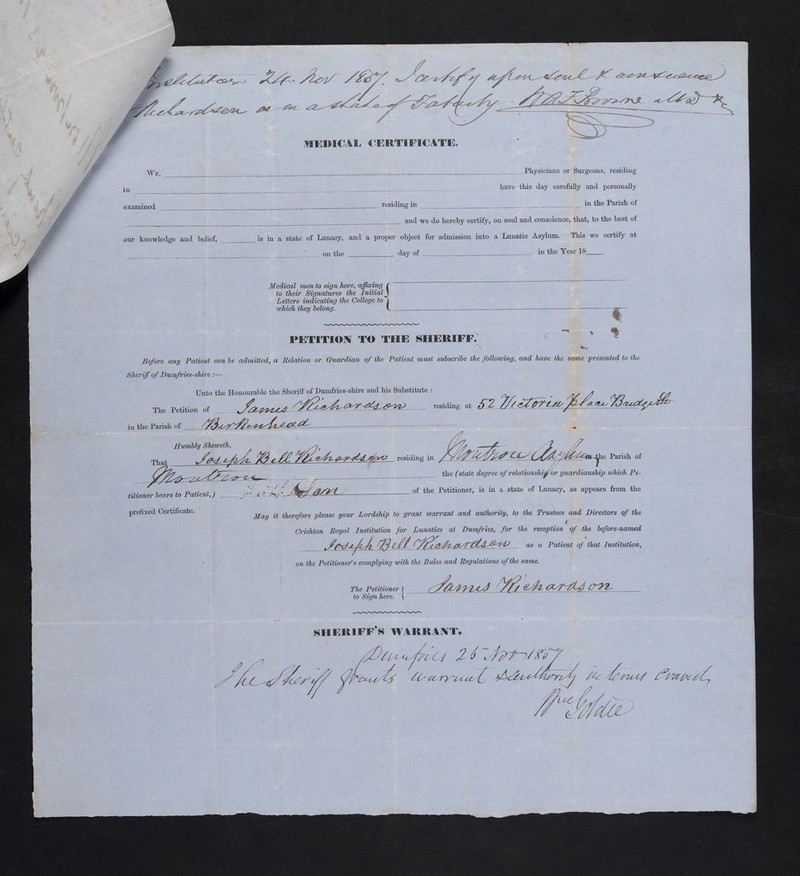 Institution 24. Nov 1857. I certify upon soul & conscience
Richardson is in a state of Fatuity. W A F Browne M.D.
MEDICAL CERTIFICATE.
We, Physicians or Surgeons, residing
in have this day carefully and personally
examined residing in in the Parish of
and we do hereby certify, on soul and conscience, that, to the best of
our knowledge and belief, is in a state of Lunacy, and a proper object for admission into a Lunatic Asylum. This we certify at
on the day of in the Year 18
Medical men to sign here, affixing
to their Signatures the Initial
Letters indicating the College to
which they belong.
PETITION TO THE SHERIFF.
Before any Patient can be admitted, a Relation or Guardian of the Patient must subscribe the following, and have the same presented to the
Sheriff of Dumfries-shire :—
Unto the Honourable the Sheriff of Dumfries-shire and his Substitute :
The Petition of James Richardson residing at 52 Victoria place Bridge St
in the Parish of Birkenhead
Humbly Sheweth,
That Joseph Bell Richardson residing in Montrose Asylum in the Parish of
Montrose the (state degree of relationship or guardianship which Pe-
titioner bears to Patient,) Son of the Petitioner, is in a state of Lunacy, as appears from the
prefixed Certificate.
May it therefore please your Lordship to grant warrant and authority, to the Trustees and Directors of the
Crichton Royal Institution for Lunatics at Dumfries, for the reception of the before-named
Joseph Bell Richardson as a Patient of that Institution,
on the Petitioner's complying with the Rules and Regulations of the same.
The Petitioner
to Sign here.
James Richardson
SHERIFF'S WARRANT.
Dumfries 25 Nov 1857
The Sheriff grants warrant & authority in terms craved,
Wm Goldie